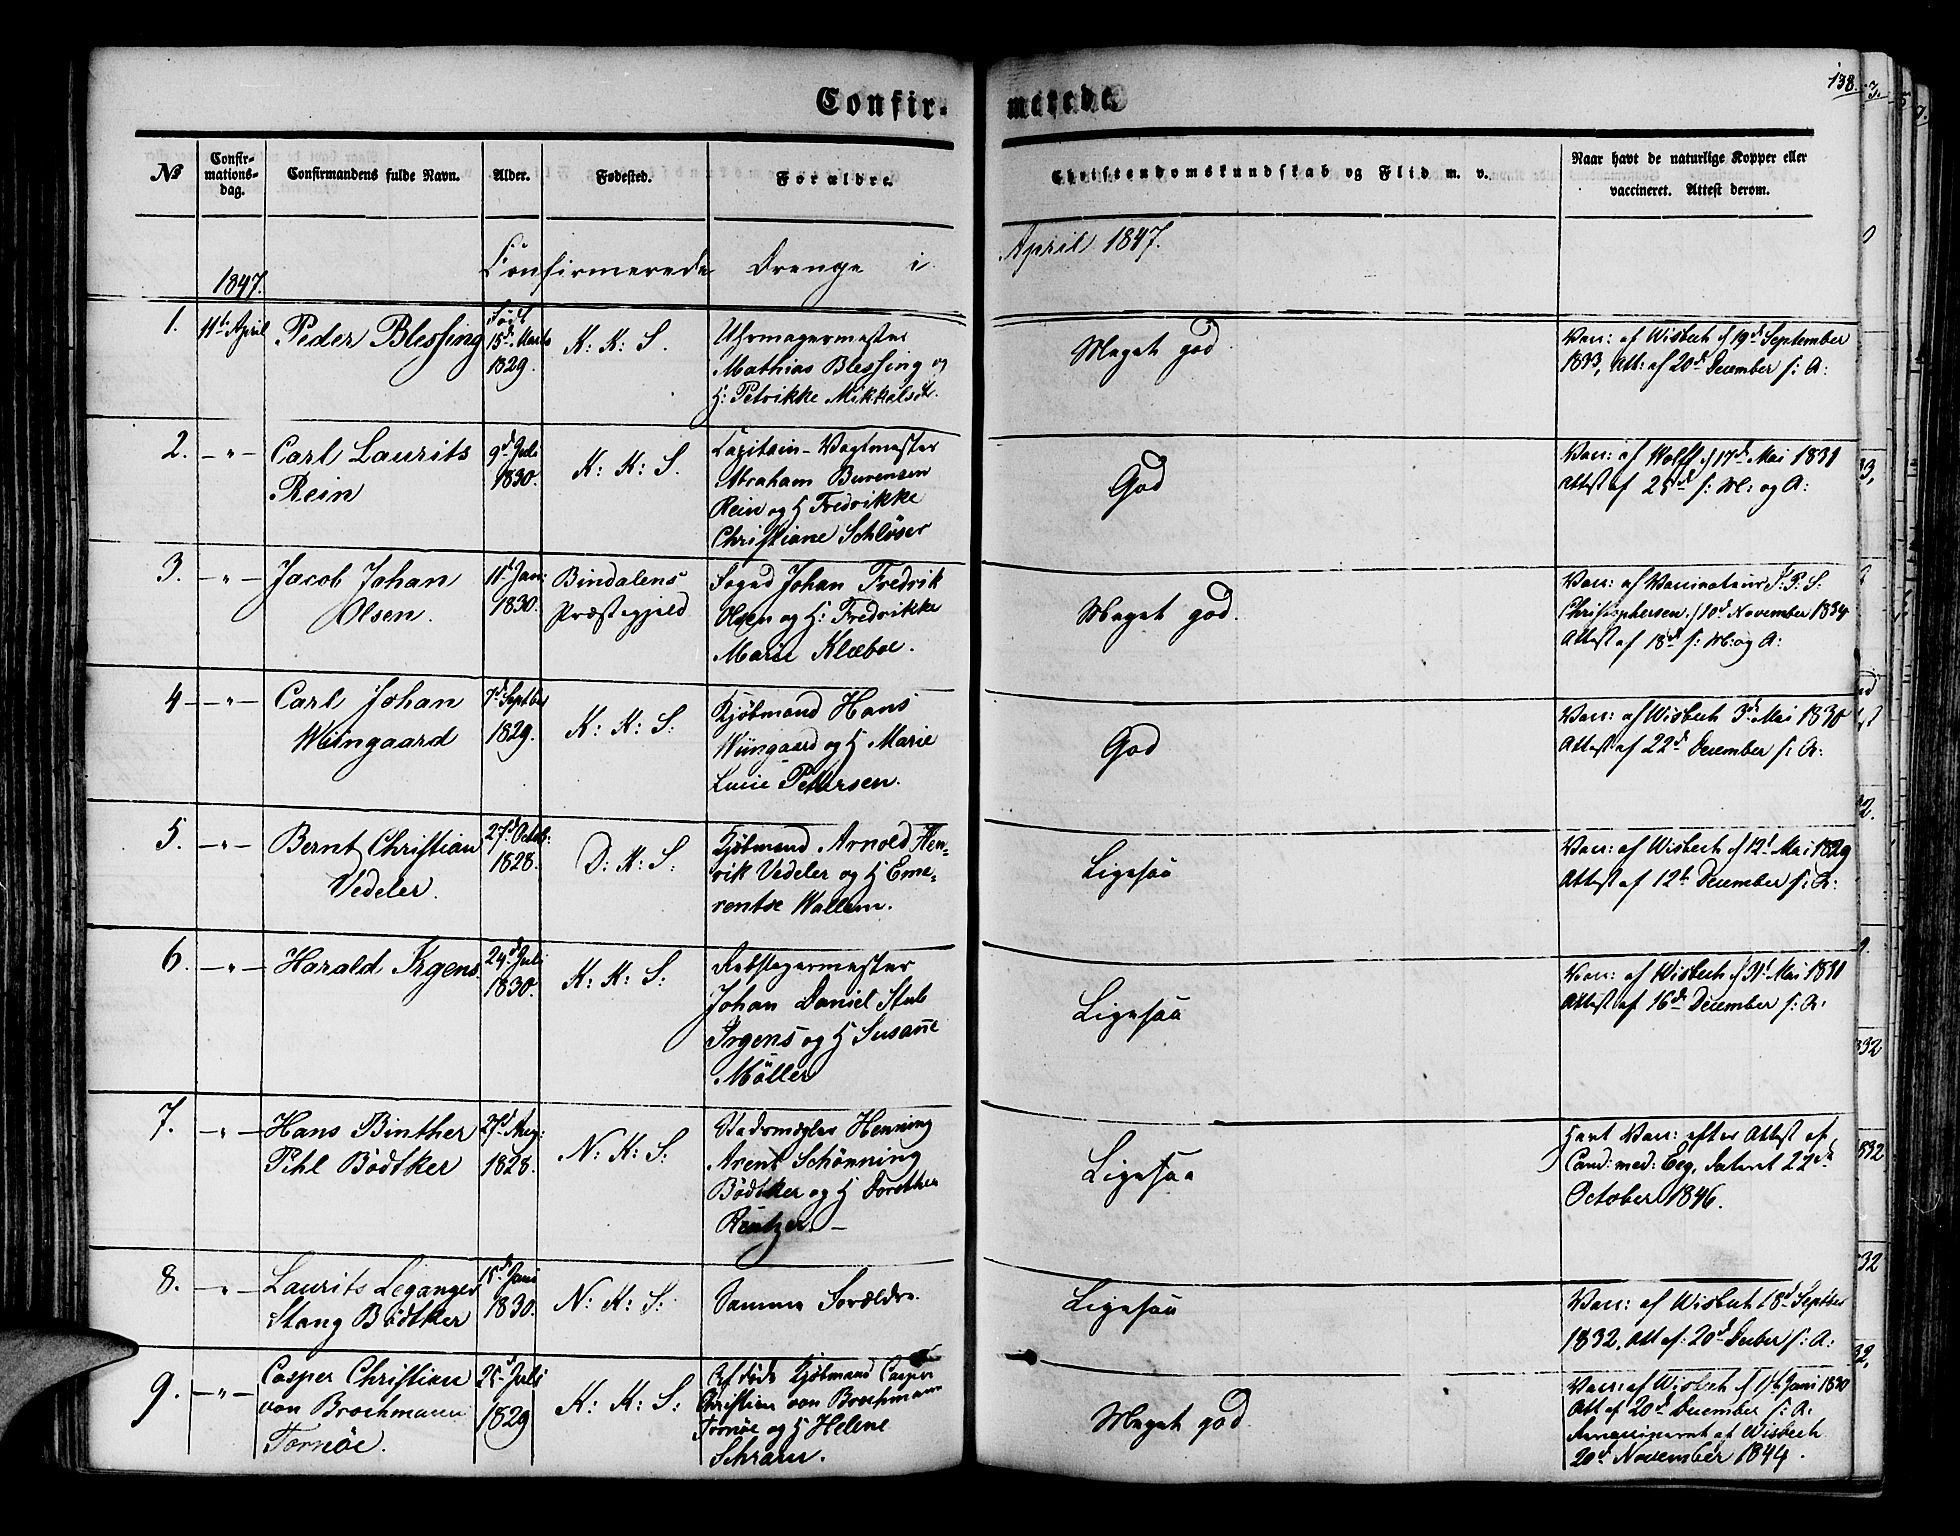 Confir-
merede.
138.
No
Confir-
mations-
dag.
Confirmandens fulde Navn.
Alder.
Fødested.
Forældre.
Christendomskundskab og Flid m. v.
Naar havt de naturlige Kopper eller
vaccineret. Attest derom.
1847.
Confirmerede Drenge i
April 1847.
1.
11te April
Peder Blessing
Født
15d Marts
1829.
K: K: S.
Uhrmagermester
Mathias Blessing og
H: Petrikke Mikkelsdr.
Meget god.
Vacc: af Wisbech d 19d September
1833, Att: af 20d December s: A:
2.
— " —
Carl Laurits
Rein
9d Juli
1830.
K: K: S.
Capitain-Vagtmester
Abraham Burensen
Rein og H Fredrikke
Christiane Schløser
God
Vacc: af Wolff d 17d Mai 1831
Attest af 25d s: M: og A:
3.
— " —
Jacob Johan
Olsen.
11d Jan:
1830.
Bindalens
Præstegjeld
Foged Johan Fredrik
Olsen og H: Fredrikke
Marie Klæboe.
Meget god.
Vacc: af Vaccinateur J. P. S.
Christophersen d 10d November 1834
Attest af 18d s: M: og A:
4
— " —
Carl Johan
Wiingaard
7d Septber
1829.
K: K: S:
Kjøbmand Hans
Wiingaard og H Marie
Lucie Pettersen.
God
Vacc: af Wisbech 3d Mai 1830
Attest af 22d December s: A:
5.
— " —
Bernt Christian
Vedeler.
27d Octob:
1828.
D: K: S:
Kjøbmand Arnold Hen-
rik Vedeler og H Eme-
rentse Wallem.
Ligesaa
Vacc: af Wisbech d 12t Mai 1829
Attest af 12te December s: A:
6.
— " —
Harald Irgens
24d Juli
1830.
K: K: S:
Rebslagermester
Johan Daniel Stub
Irgens og H Susane
Möller
Ligesaa
Vacc: af Wisbech d 31t Mai 1831
Attest af 16d December s: A:
7.
— " —
Hans Binther
Pihl Bödtker
27d Aug:
1828.
N: K: S:
Stadsmægler Henning
Arent Schönning
Bödtker og H Dorothea
Rentzer. —
Ligesaa
Havt Vacc: efter Attest af
Cand: med: Eeg, dateret 22de
October 1846.
8.
— " —
Laurits Leganger
Stang Bødtker
15d Juni
1830.
N: K: S:
Samme Forældre.
Ligesaa
Vacc: af Wisbech 18d Septber
1832, Att af: 20d Decber s: A:
9.
— " —
Casper Christian
von Brochmann
Tornöe.
25d Juli
1829
K: K: S:
Afdøde Kjøbmand Casper
Christian von Brochmann
Tornöe og H Helene
Schram.
Meget god.
Vacc: af Wisbech d 1ste Juni 1830
Att af 20d December s: A:
Revaccineret af Wisbech
20d November 1844.